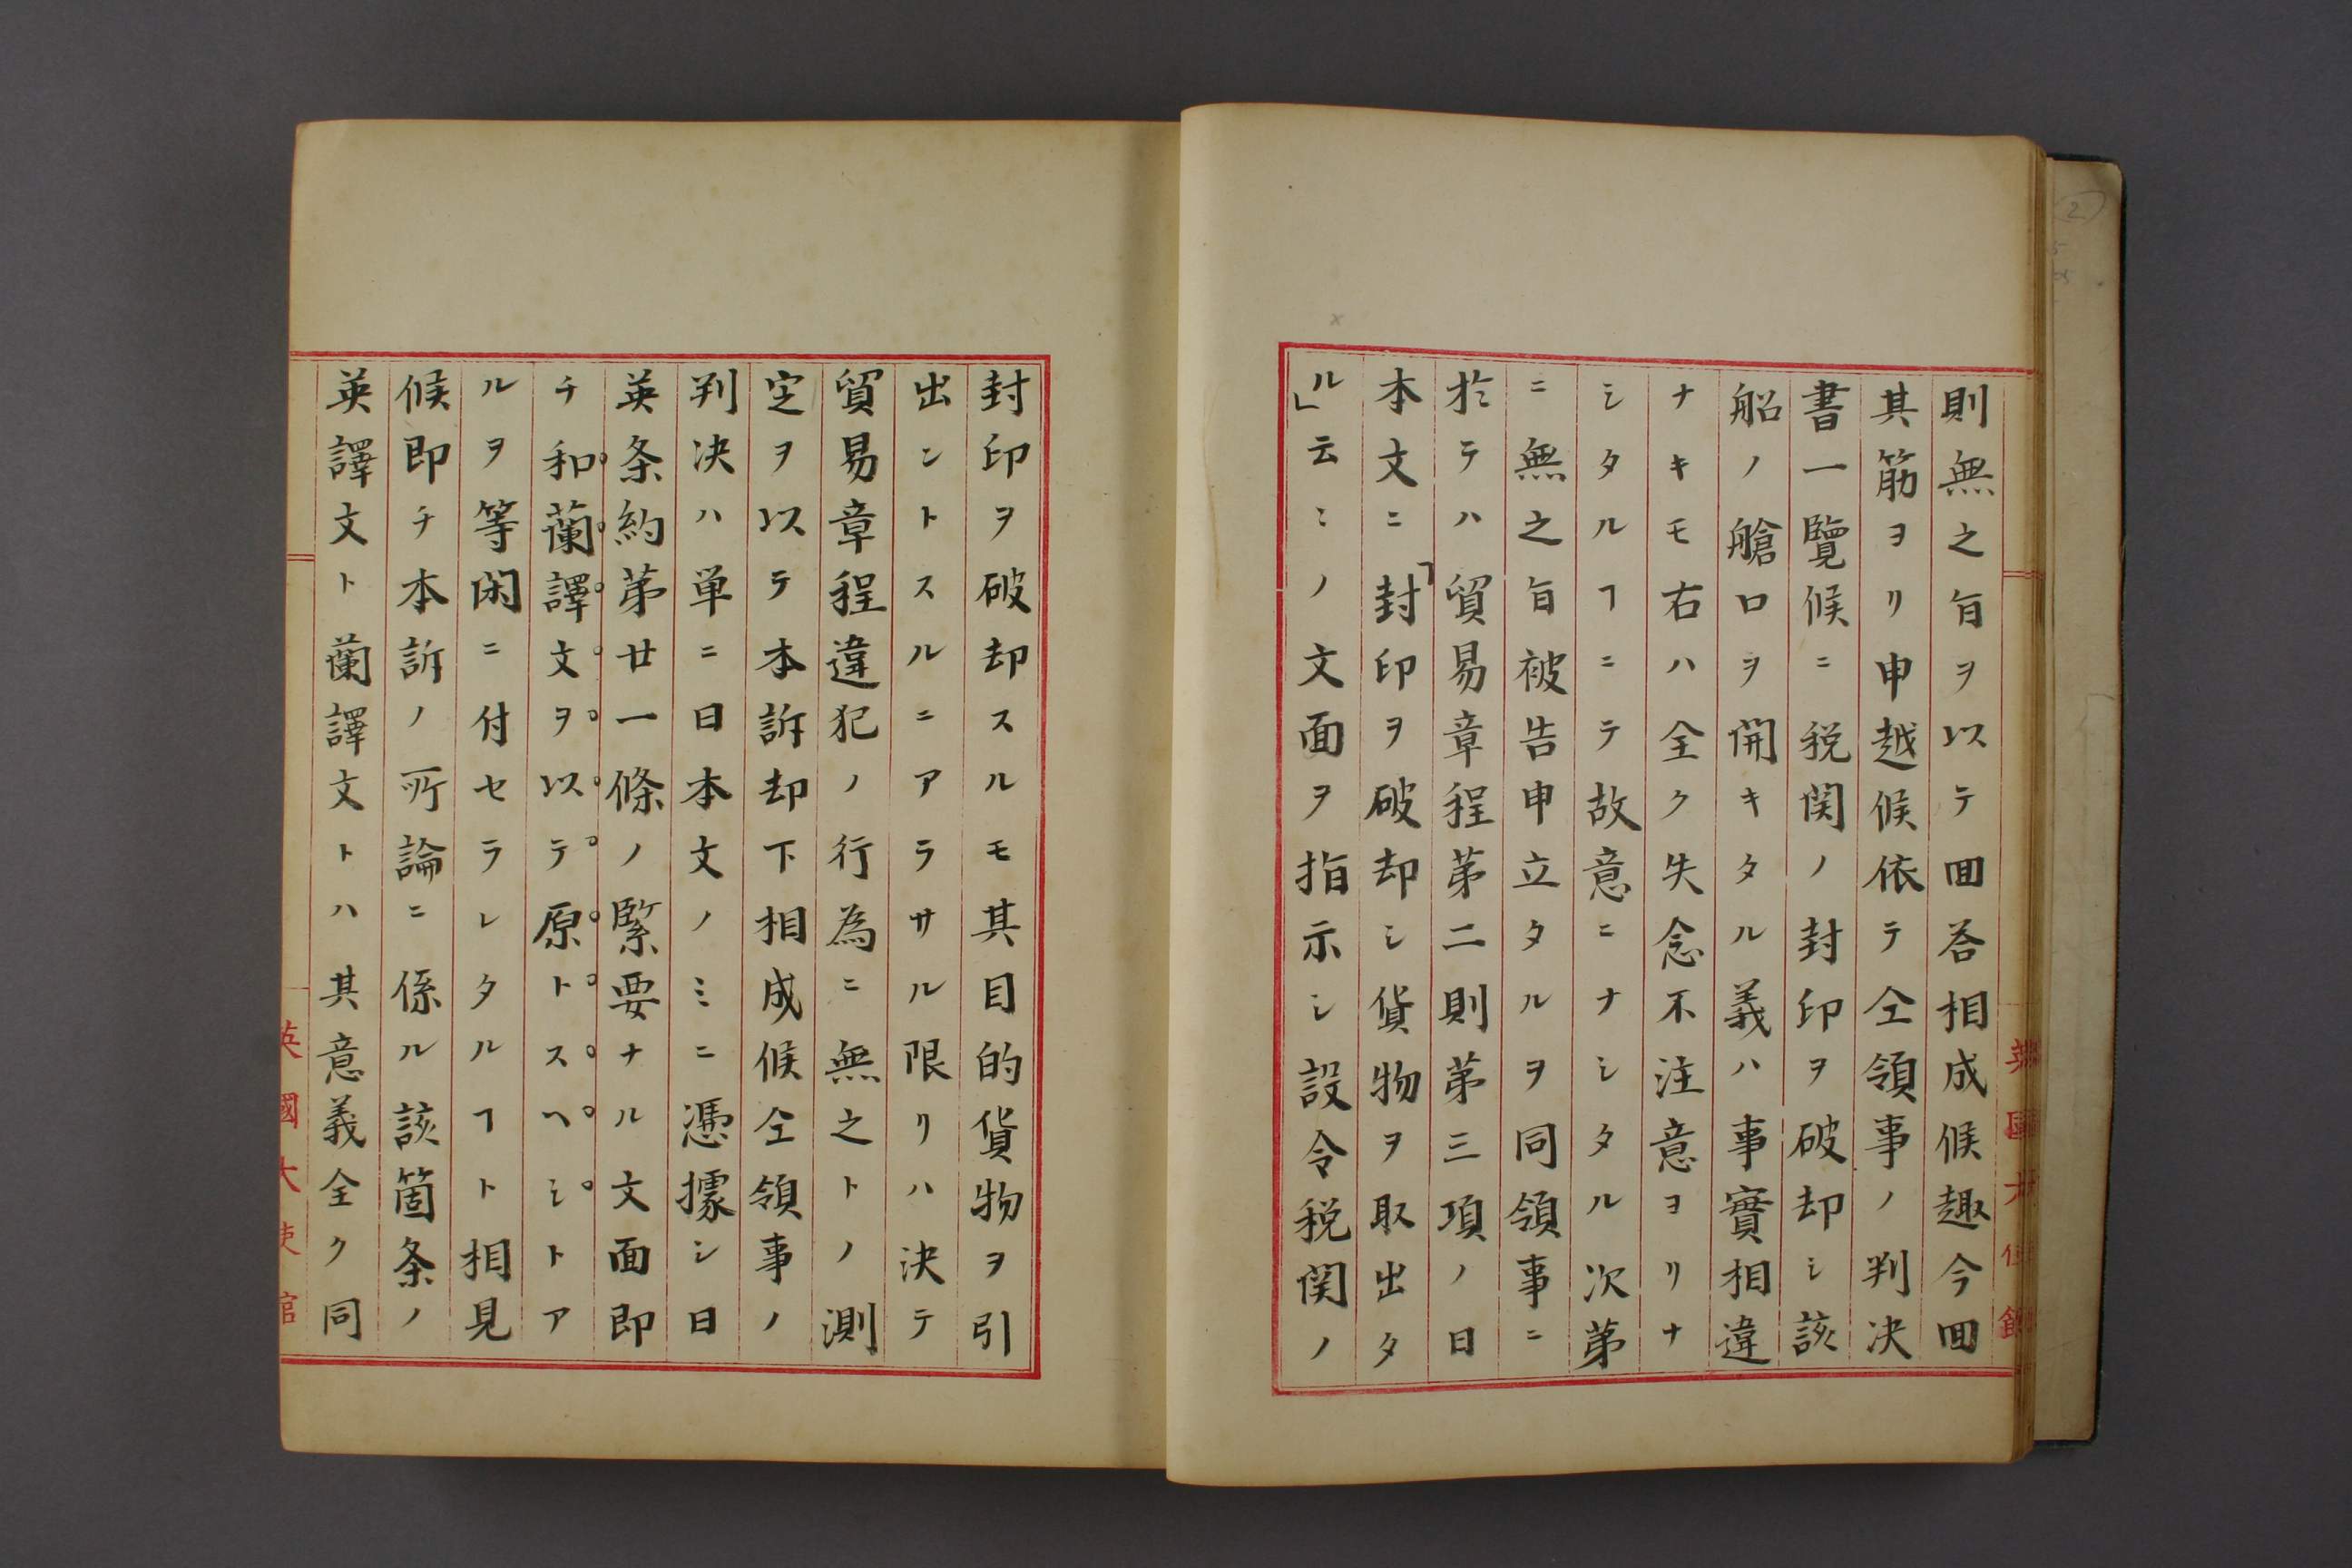 則無之旨ヲ以テ回答相成候趣今回
其筋ヨリ申越候依テ仝領事ノ判决
書一覽候ニ税関ノ封印ヲ破却シ該
船ノ艙口ヲ開キタル義ハ事實相違
ナキモ右ハ全ク失念不注意ヨリナ
シタルヿニテ故意ニナシタル次第
ニ無之旨被告申立タルヲ同領事ニ
於テハ貿易章程第二則第三項ノ日
本文ニ「封印ヲ破却シ貨物ヲ取出タ
ル」云〻ノ文面ヲ指示シ設令税関ノ
封印ヲ破却スルモ其目的貨物ヲ引
出ントスルニアラサル限リハ決テ
貿易章程違犯ノ行為ニ無之トノ測
定ヲ以テ本訴却下相成候仝領事ノ
判决ハ単ニ日本文ノミニ憑據シ日
英条約第廿一條ノ緊要ナル文面即
チ和蘭譯文ヲ以テ原トスヘシトア
ルヲ等閑ニ付セラレタルヿト相見
候即チ本訴ノ所論ニ係ル該箇条ノ
英譯文ト蘭譯文トハ其意義全ク同
英國大使館
英國大使館
2